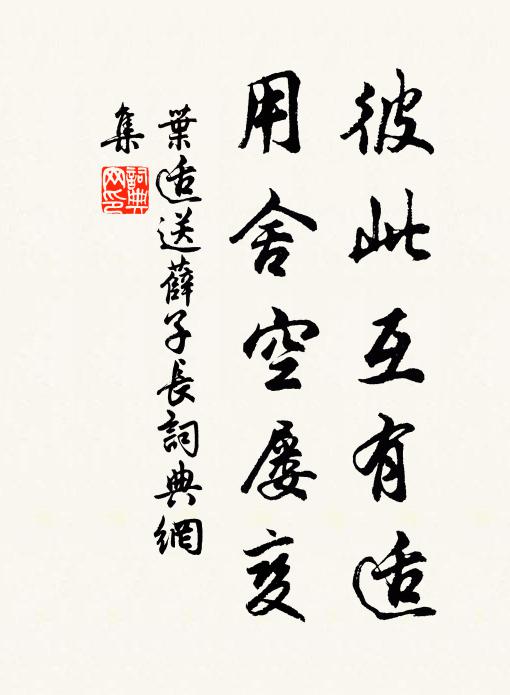 彼此互有适
用舍空屡变
葉适送薛子長詞典網
集
詞典网印